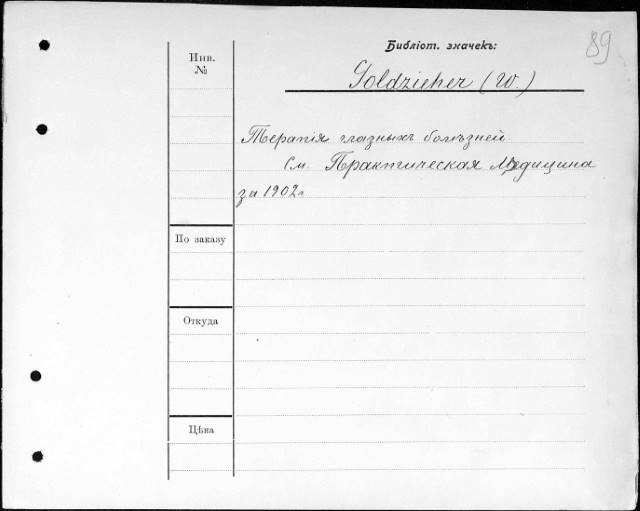 Библіот. значекъ:
89
Инв.
№
Goldzieher (W.)
Терапія глазныхъ болѣзней.
См. Практическая Медицина
за 1902г
По заказу
Откуда
Цѣна